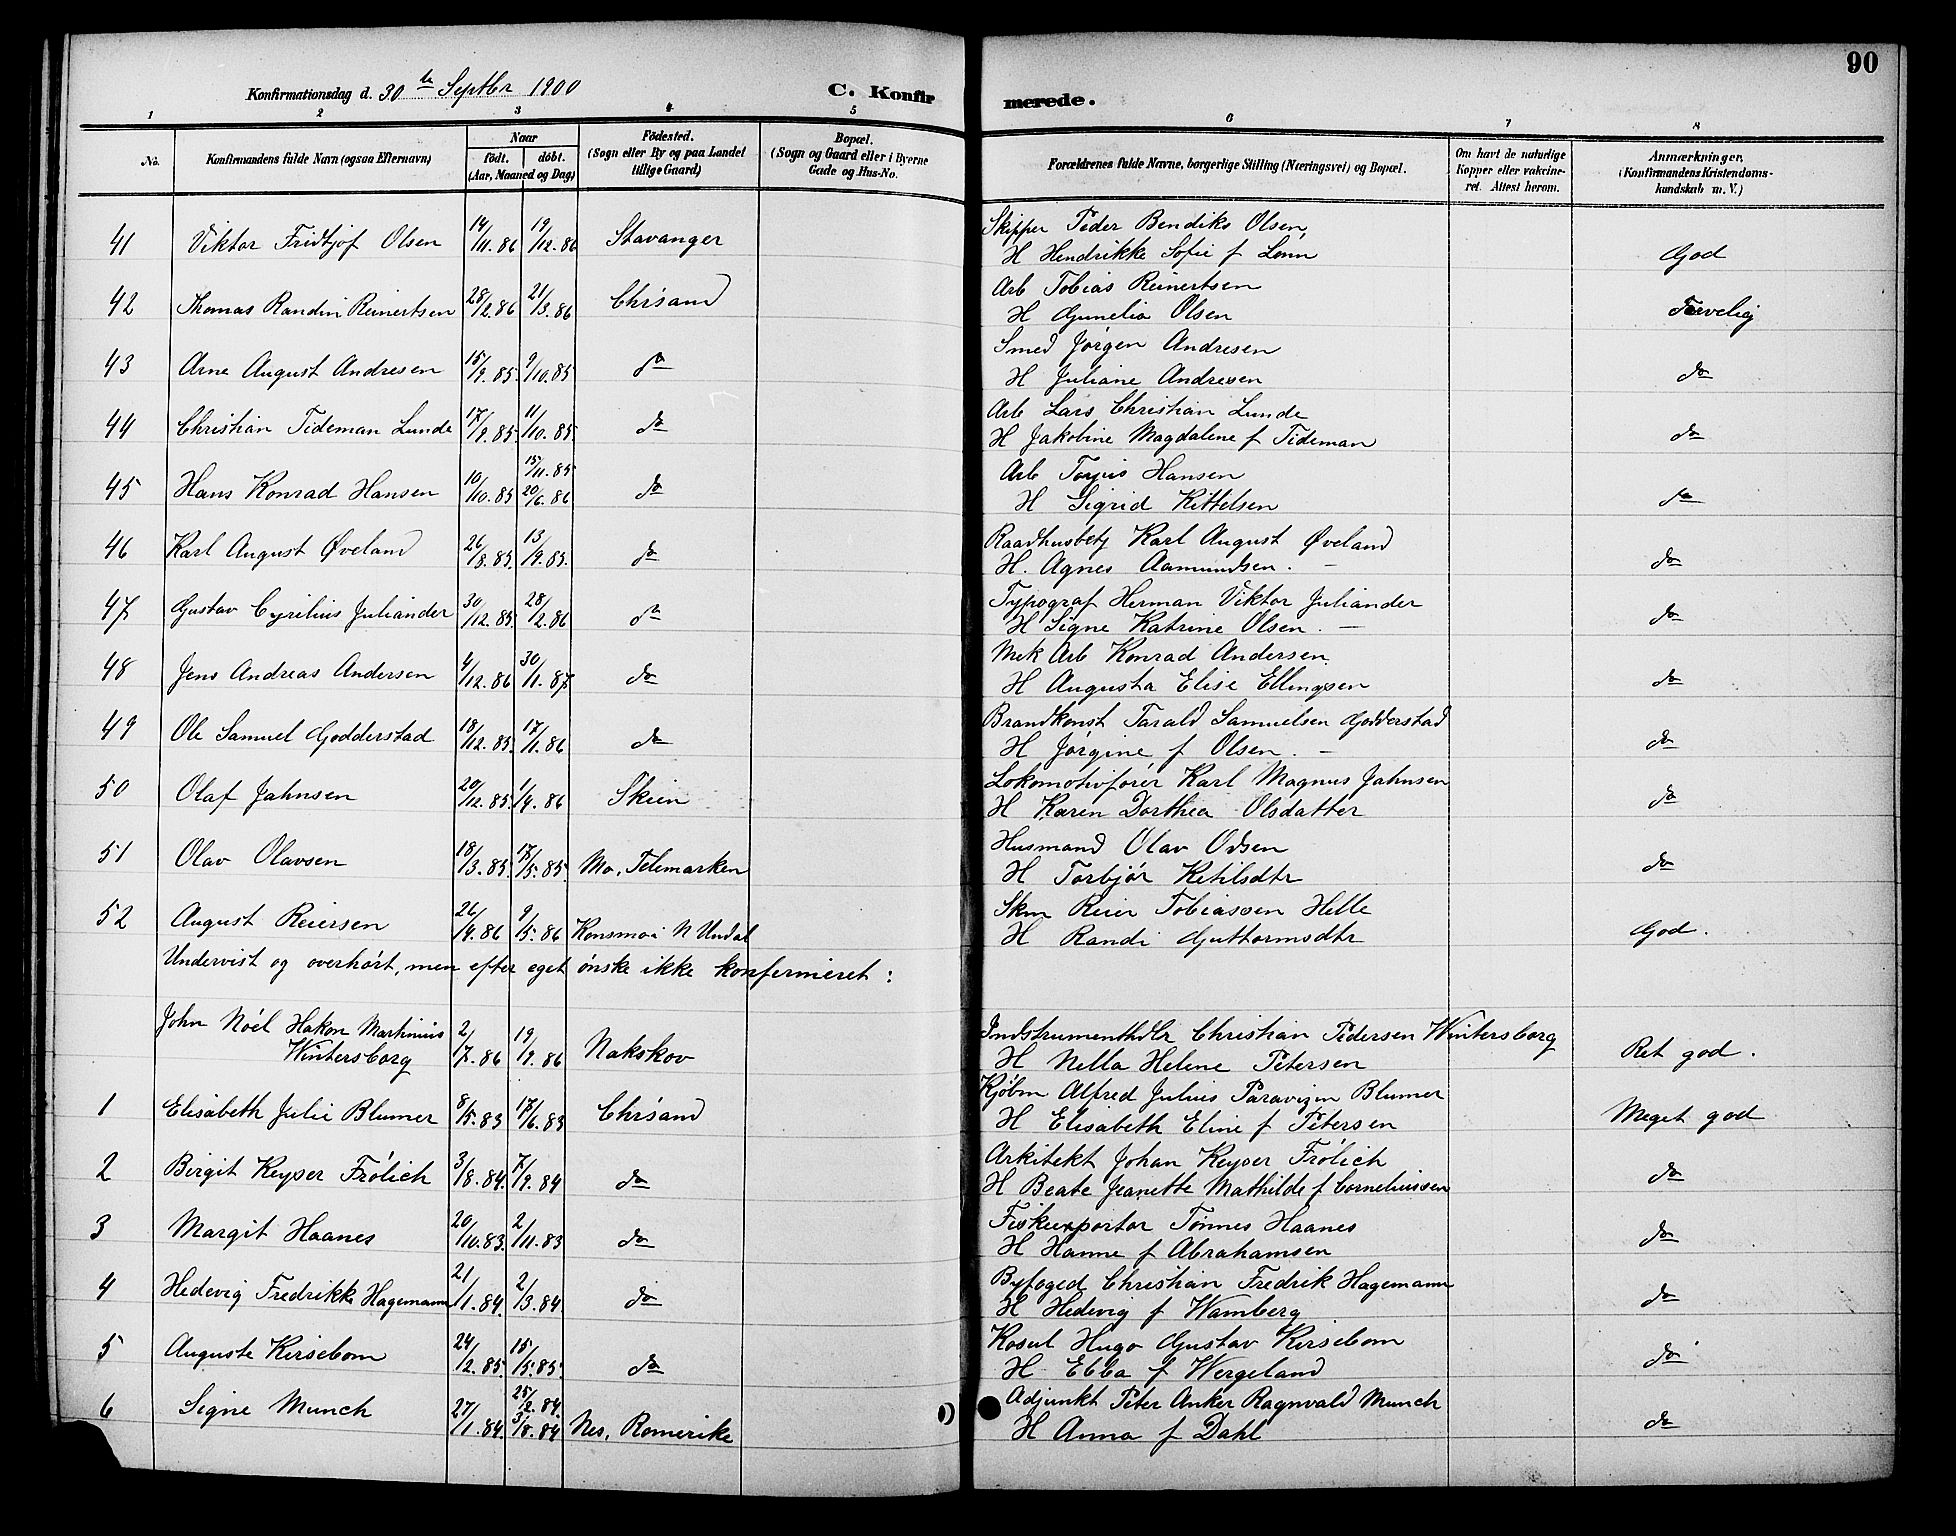 90
Konfirmationsdag d. 30te Septbr 1900
C. Konfirmerede.
1 2 3 4 5 6 7 8
No. Konfirmandens fulde Navn (ogsaa Efternavn) Naar født. døbt. (Aar, Maaned og Dag) Fødested. (Sogn eller By og paa Landet tillige Gaard) Bopæl. (Sogn og Gaard eller i Byerne Gade og Hus-No. Forældrenes fulde Navne, borgerlige Stilling (Næringsvei) og Bopæl. Om havt de naturlige Kopper eller vakcineret. Attest herom. Anmærkninger. (Konfirmandens Kristendomskundskab m. V.)
41 Viktor Fridtjof Olsen 14/11.86 19/12.86 Stavanger Skipper Peder Bendiks Olsen,
H Hendrikke Sofie f Lønn God
42 Thomas Randin Reinertsen 28/2.86 21/3.86 Chrisand Arb Tobias Reinertsen
H Gunelia Olsen Tarvelig
43 Arne August Andresen 15/9.85. 9/10.85 do Smed Jørgen Andresen
H Juliane Andresen do
44 Christian Tideman Lunde 17/9.85. 11/10.85. do Arb Lars Christian Lunde
H Jakobine Magdalene f Tideman do
45 Hans Konrad Hansen 10/10.85 15/11.85 20/6.86 do Arb Torjus Hansen
H Sigrid Kittelsen do
46 Karl August Øveland 26/8.85. 13/9.85. do Raadhusbetj Karl August Øveland
H. Agnes Aamundsen. – do
47 Gustav Cyrilius Juliander 30/12.85. 28/2.86 do Typograf Herman Viktor Juliander
H Signe Katrine Olsen. – do
48 Jens Andreas Andersen 4/12.86 30/1.87 do Mek Arb Konrad Andersen.
H Augusta Elise Ellingsen do
49 Ole Samuel Godderstad 18/12.85. 17/1.86 do Brandkonst Tarald Samuelsen Godderstad
H Jørgine f Olsen. – do
50 Olaf Jahnsen 20/12.85. 1/4.86 Skien Lokomotivfører Karl Magnus Jahnsen
H Karen Dorthea Olsdatter do
51 Olav Olavsen 18/3.85. 17/5.85. Mo, Telemarken Husmand Olav Odsen
H Torbjør Ketilsdtr do
52 August Reiersen 26/4.86 9/5.86 Konsmo i N Undal Skm Reier Tobiassen Helle
H Randi Guttormsdtr God.
Undervist og overhørt, men efter eget ønske ikke konfermeret:
John Nóel Hakon Martinius
Wintersborg 2/7.86 19/9.86 Nakskov Indstrumenthdlr Christian Pedersen Wintersborg
H Nella Helene Petersen Ret god.
1 Elisabeth Julie Blumer 8/5.83 17/6.83 Chrisand Kjøbm Alfred Julius Paravizin Blumer
H Elisabeth Eline f Petersen Meget god
2 Birgit Keyser Frølich 3/8.84. 7/9.84 do Arkitekt Johan Keyser Frølich
H Beate Jeanette Mathilde f Corneliussen do
3 Margit Haanes 20/10.83. 2/11.83 do Fiskexportør Tønnes Haanes
H Hanne f Abrahamsen do
4 Hedevig Fredrikke Hagemann 21/1.84. 2/3.84. do Byfoged Christian Fredrik Hagemann
H Hedevig f Wamberg do
5 Auguste Kirsebom 24/2.85. 15/5.85. do Kosul Hugo Gustav Kirsebom
H. Ebba f Wergeland do
6 Signe Munch 27/1.84. 25/2.84. 3/8.84 Nes, Romerike Adjunkt Peter Anker Ragnvald Munch
H Anna f Dahl do